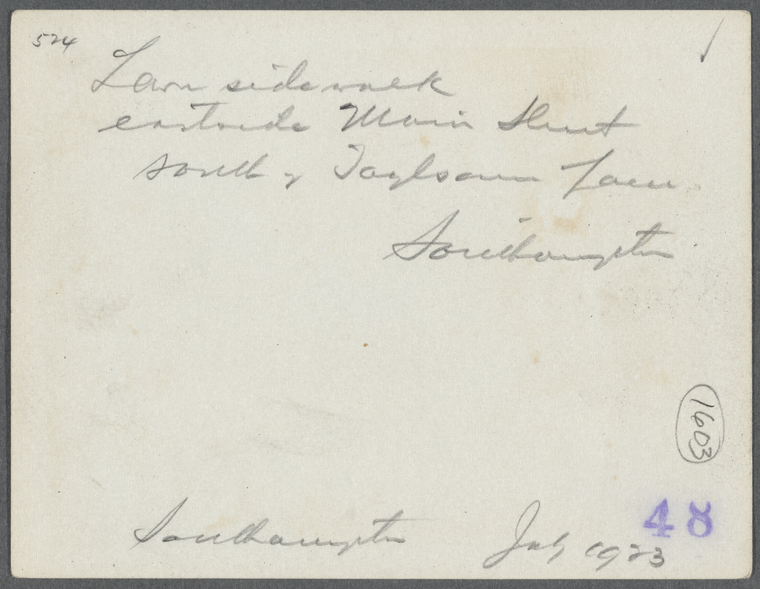 524
Lawn sidewalk
eastside Main Street
south of Lane
Southampton
1603
48
Southampton July 1923